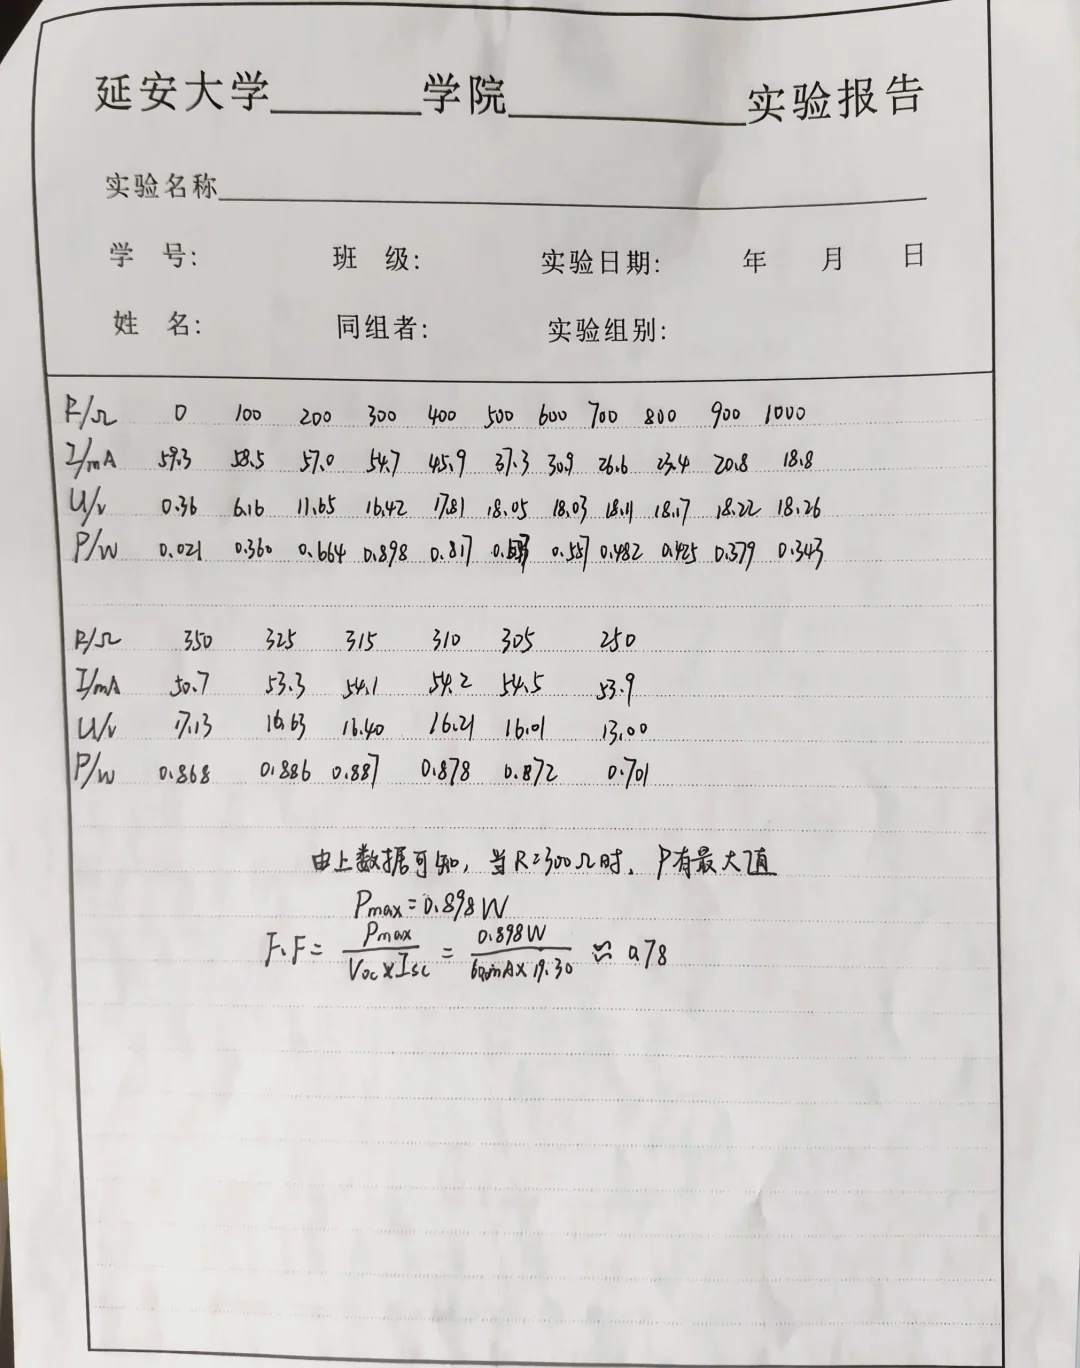 延安大学______学院__________实验报告
实验名称
学 号: 班 级: 实验日期: 年 月 日
姓 名: 同组者: 实验组别:
R/Ω 0 100 200 300 400 500 600 700 800 900 1000
I/mA 59.3 58.5 57.0 54.7 45.9 37.3 30.9 26.6 23.4 20.8 18.8
U/v 0.36 6.16 11.65 16.42 17.81 18.05 18.03 18.11 18.17 18.22 18.26
P/w 0.021 0.360 0.664 0.898 0.817 0.557 0.482 0.425 0.379 0.343
R/Ω 350 325 315 310 305 250
I/mA 50.7 53.3 54.1 54.2 54.5 53.9
U/v 17.13 16.63 16.40 16.21 16.01 13.00
P/w 0.868 0.886 0.887 0.878 0.872 0.701
由上数据可知, 当R=300Ω时, P有最大值
Pmax=0.898W
F.F= Pmax/Voc×Isc = 0.898W/60.0mA×19.30 ≈ 0.78